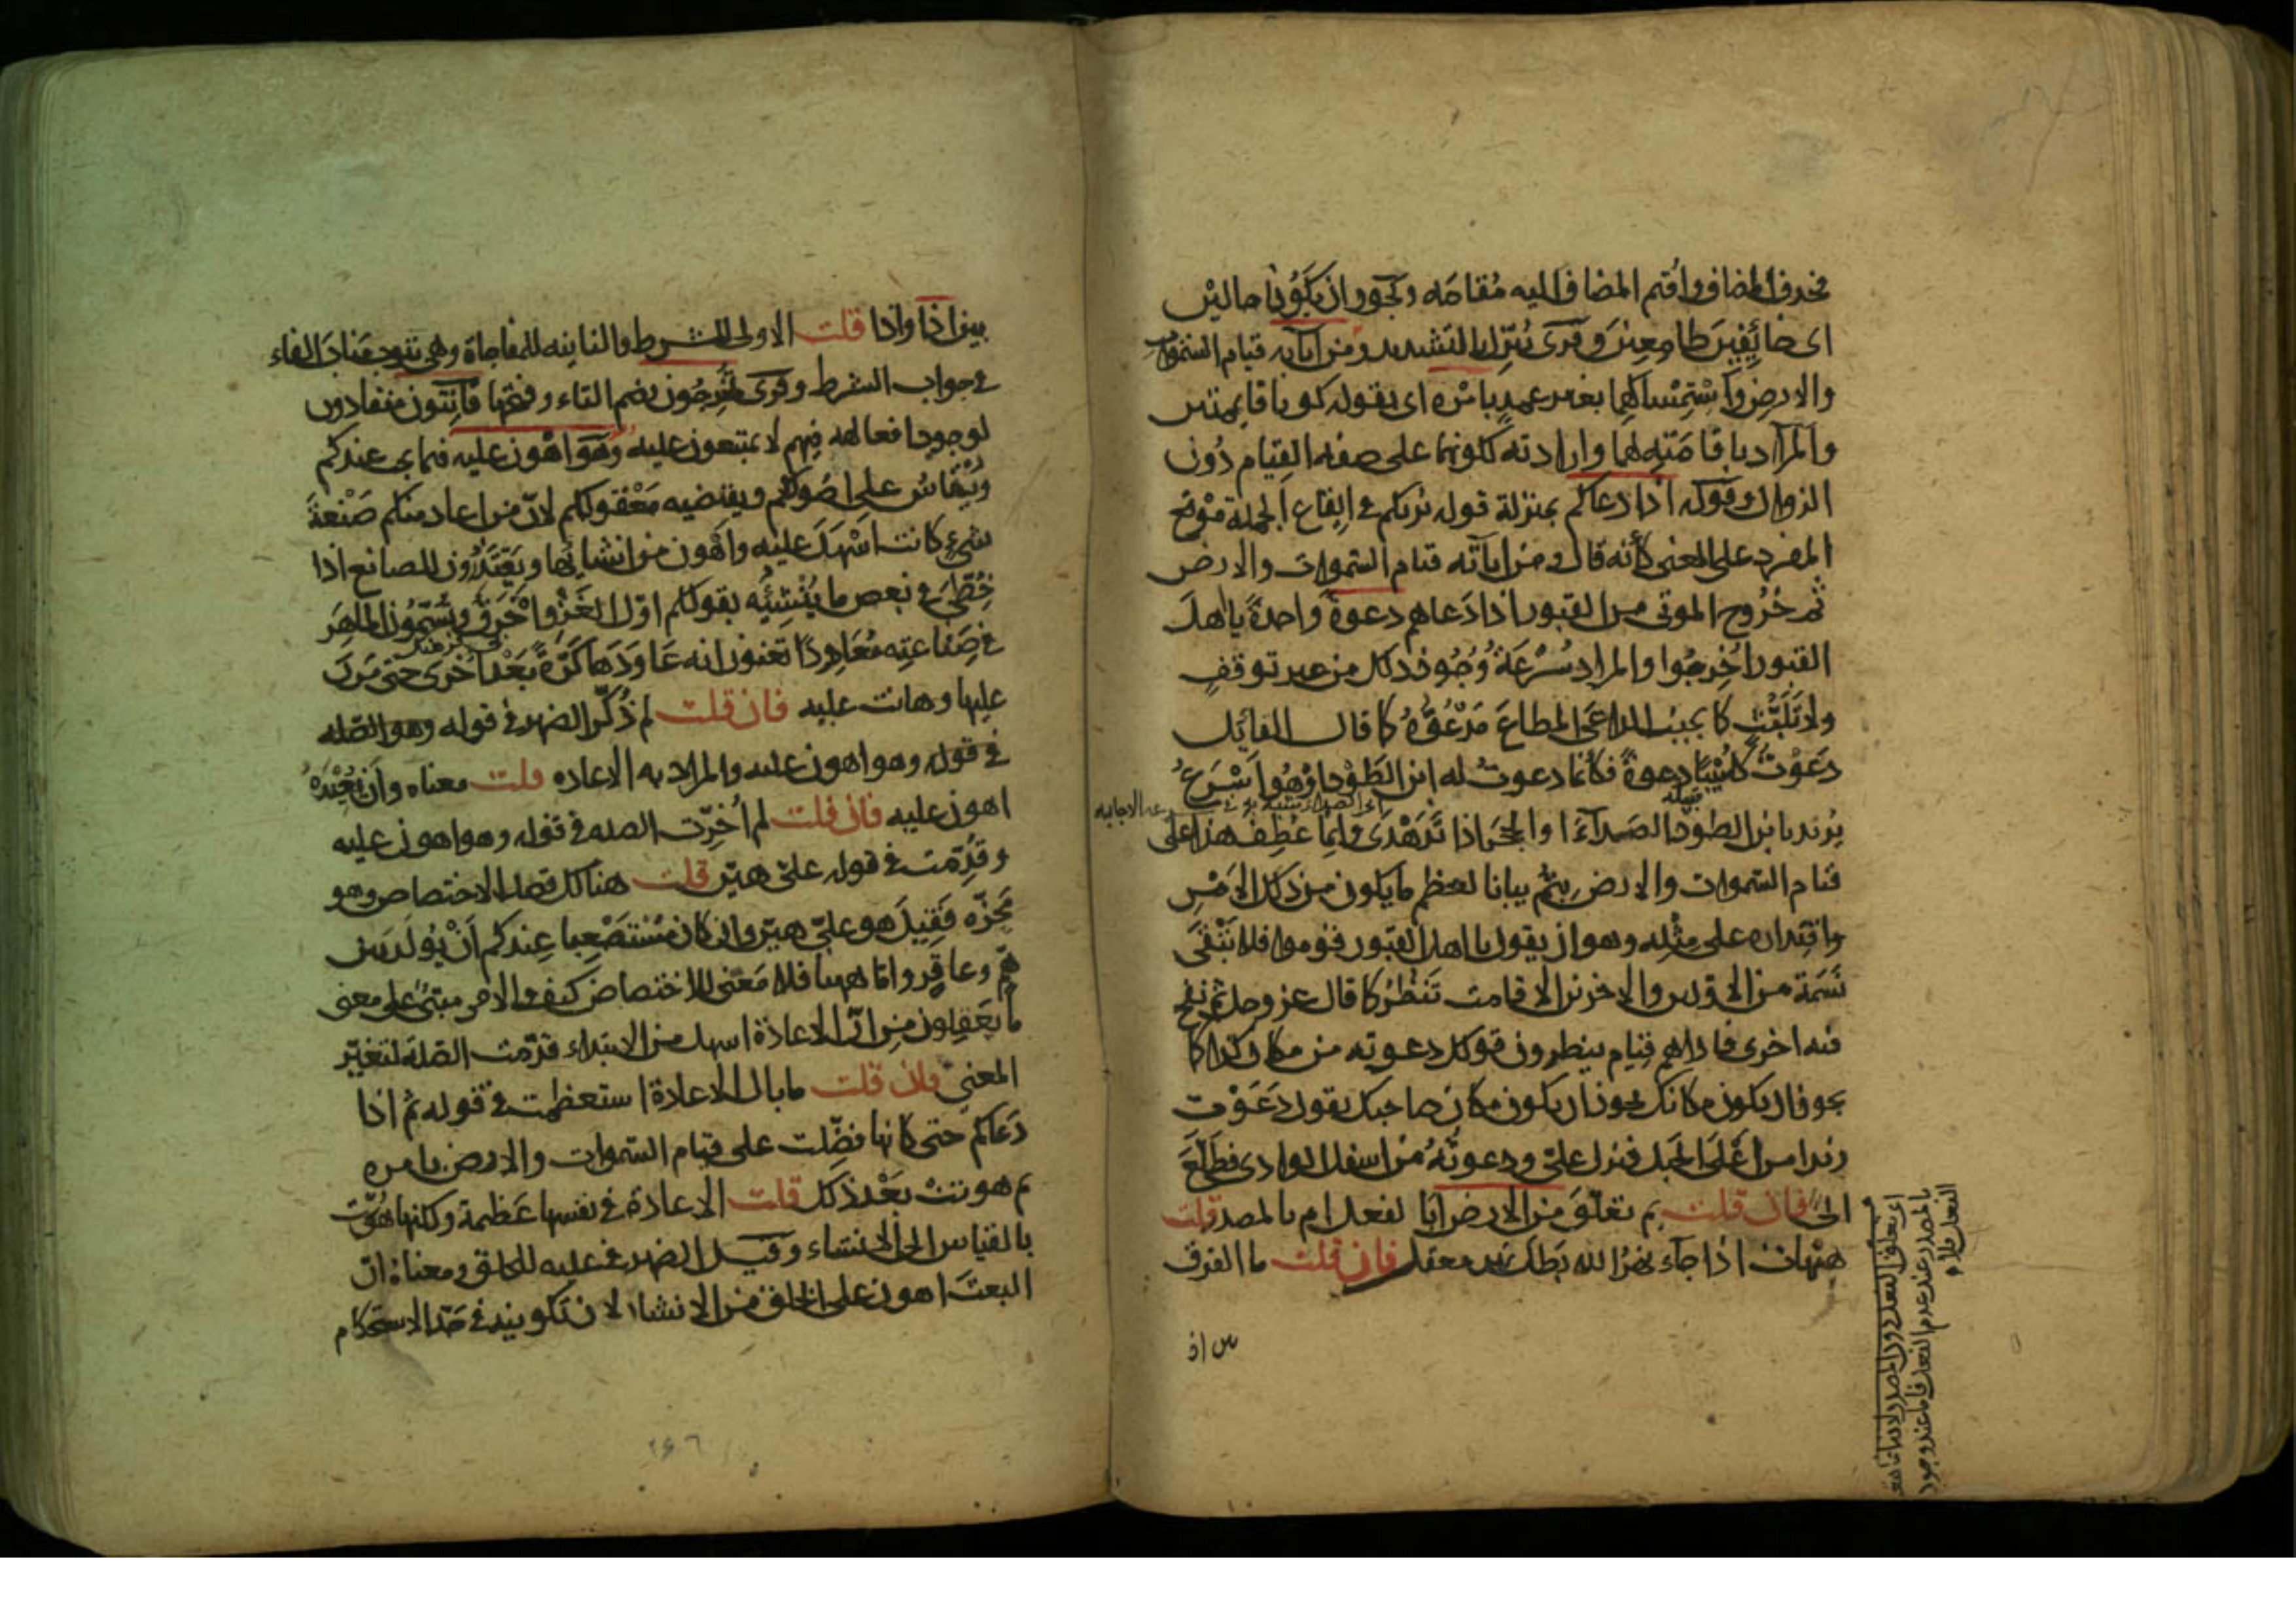 فحذف المضاف واقيم المضاف اليه مُقامَه ويجوز ان يكونا حالين
اى خائفين طامعين وقرئ يُنَزّل بالتشديد ومن اياته قيام السموات
والارض واستِمْساكهما بغير عمدٍ بامْره اى بقوله كونا قايمتين
والمراد باقامَتِه لهما وارادته لكونهما على صفه القِيام دُون
الزوال وقوله اذا دعاكم بمنزلة قوله يريكم في ايقاع الجملة مَوْقِع
المفرد على المعنى كأنه قال ومن اياته قيام السموات والارض
ثم خُرُوج الموتى من القبور اذا دَعاهم دعوةً واحدةً يا اهل
القبور اُخْرجُوا والمراد سُرْعَةُ وُجُود ذلك من غير توقفٍ
ولا تَلَبُّثٍ كما يجيب الداعىَ المطاعَ مَدْعُوُّهُ كما قال القائل
دَعَوْتُ كُلَيْبًا دعوةً فكأنما دعوتُ به ابن الطَوْد او هُوَ اَسْرَعُ
يريد بابن الطود الصداء او الحجر اذا تَدَهْدَى وانما عُطِف هذا على
قيام السموات والارض بثُمَّ بيانا لعظم ما يكون من ذلك الامْرِ
واقتداره على مِثْلِه وهو ان يقول يا اهل القبور قوموا فلا تَبْقَى
نَسَمَة من الاولين والاخرين الا قامت تَنْظُرُ كما قال عز وجل ثم نفخ
فيه اخرى فاذا هم قيام ينظرون قولك دعوته من مكان كذا كما
يجوز ان يكون مكانك يجوز ان يكون مكان صاحبك تقول دَعَوْت
زيدا من اعْلَى الجبل فنزل علىّ ودعوتُهُ من اسفل الوادى فطَلَعَ
الىّ فان قلت بم تعلّق من الارض ابا لفعل ام بالمصدر قلت
هيهات اذا جاء نهرُ الله بَطَلَ نهر معقل فان قلت ما الفرق
بين اذ
بين اذا واذا قلت الاولى للشرط والثانيه للمفاجاة وهى تنوب مَناب الفاء
في جواب الشرط وقرئ تُخرجُون بضم التاء وفتحها قَانِتُون منقادون
لوجود افعاله فيهم لا يمتنعون عليه وهو اهون عليه فيما يجب عندكم
ويُنْقَاسُ على اصُولكم ويقتضيه مَعْقولكم لانّ من اعاد منكم صَنْعةَ
شيء كانت اسْهَلَ عليه واهْون من انشائِها ويَعْتَذِرُون للصانع اذا
خُطّئَ في بعض ما يُنْشِئُه بقولكم اوّل الغَزْو اَخْرَقُ ويُسَمُّون الماهِرَ
في صَناعتِه مُعَاوِدًا تعنون انه عَاوَدَها كرّةً بَعْد اخرى حتى مَرَنَ
عليها وهانت عليه فان قلت لم ذُكّر الضمير في قوله وهو الصله
في قوله وهو اهون عليه والمراد به الاعاده قلت معناه وان يُعِيْدَهُ
اهون عليه فان قلت لم اُخّرت الصله في قوله وهو اهون عليه
وقدّمت في قوله علىّ هيّن قلت هنالك قصد الاختصاص وهو
مَحَزّه فَقِيلَ هو علىّ هيّن وان كان مُسْتَصْعِبا عِندكم اَنْ يُولَد بين
هِمٍّ وعاقِر واما ههنا فلا مَعْنى للاختصاص كيف والامر مبنىّ على معنى
ما يَعْقِلون مِن انّ الاعادة اسهل من الابتداء قدّمت الصّلَة لتغيّر
المعنى فان قلت ما بال الاعادة استعظمت في قوله ثم اذا
دَعَاكم حتى كانها فضّلت على قيام السموات والارض بامره
ثم هونت بَعْد ذلك قلت الاعادة في نفسها عَظيمة ولكنها هُوّنت
بالقياس الى الانشاء وقيل الضمير في عليه للخلق ومعناهُ انّ
البعثَ اهون على الخلق من الانشاء لان تكوينه في حَدّ الاستحكام
٢٤٦